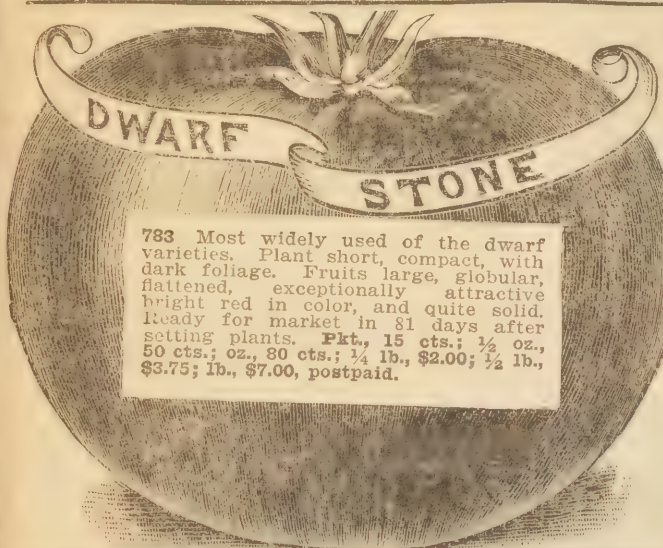 DWARF
STONE
783 Most widely used of the dwarf
varieties. Plant short, compact, with
dark foliage. Fruits large, globular,
flattened, exceptionally attractive
bright red in color, and quite solid.
Ready for market in 81 days after
setting plants. Pkt., 15 cts.; ½ oz.,
50 cts.; oz., 80 cts.; ¼ lb., $2.00; ½ lb.,
$3.75; lb., $7.00, postpaid.